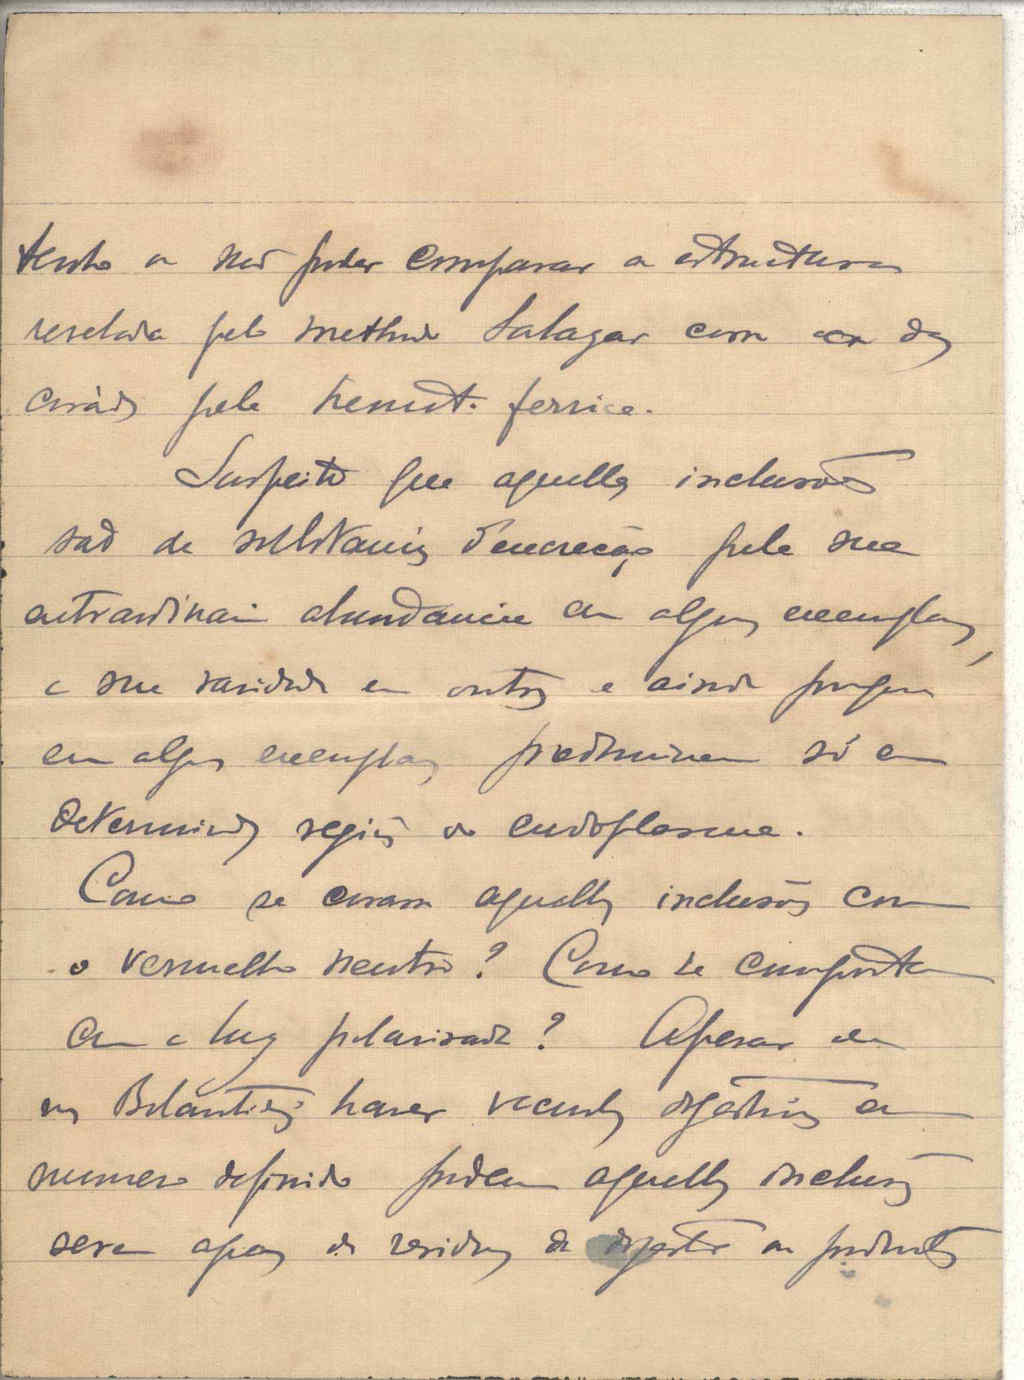 tenho a não poder comparar a estructura
revelada pelo methodo Salazar com a dos
corados pela hemat. ferrica.
Suspeito que aquellas inclusões
são de substancias d'excreção pela sua
extraordinaria abundancia em alguns exemplares,
e sua raridade em outros e ainda porque
em alguns exemplares predominam só em
determinadas regiões do endoplasma.
Como se coram aquellas inclusões com
o vermelho neutro? Como se comportam
com a luz polarisada? Apesar de
nos Balantidios haver vacuolos digestivos em
numero definido podem aquellas inclusões
serem apenas de residuos de digestão ou productos